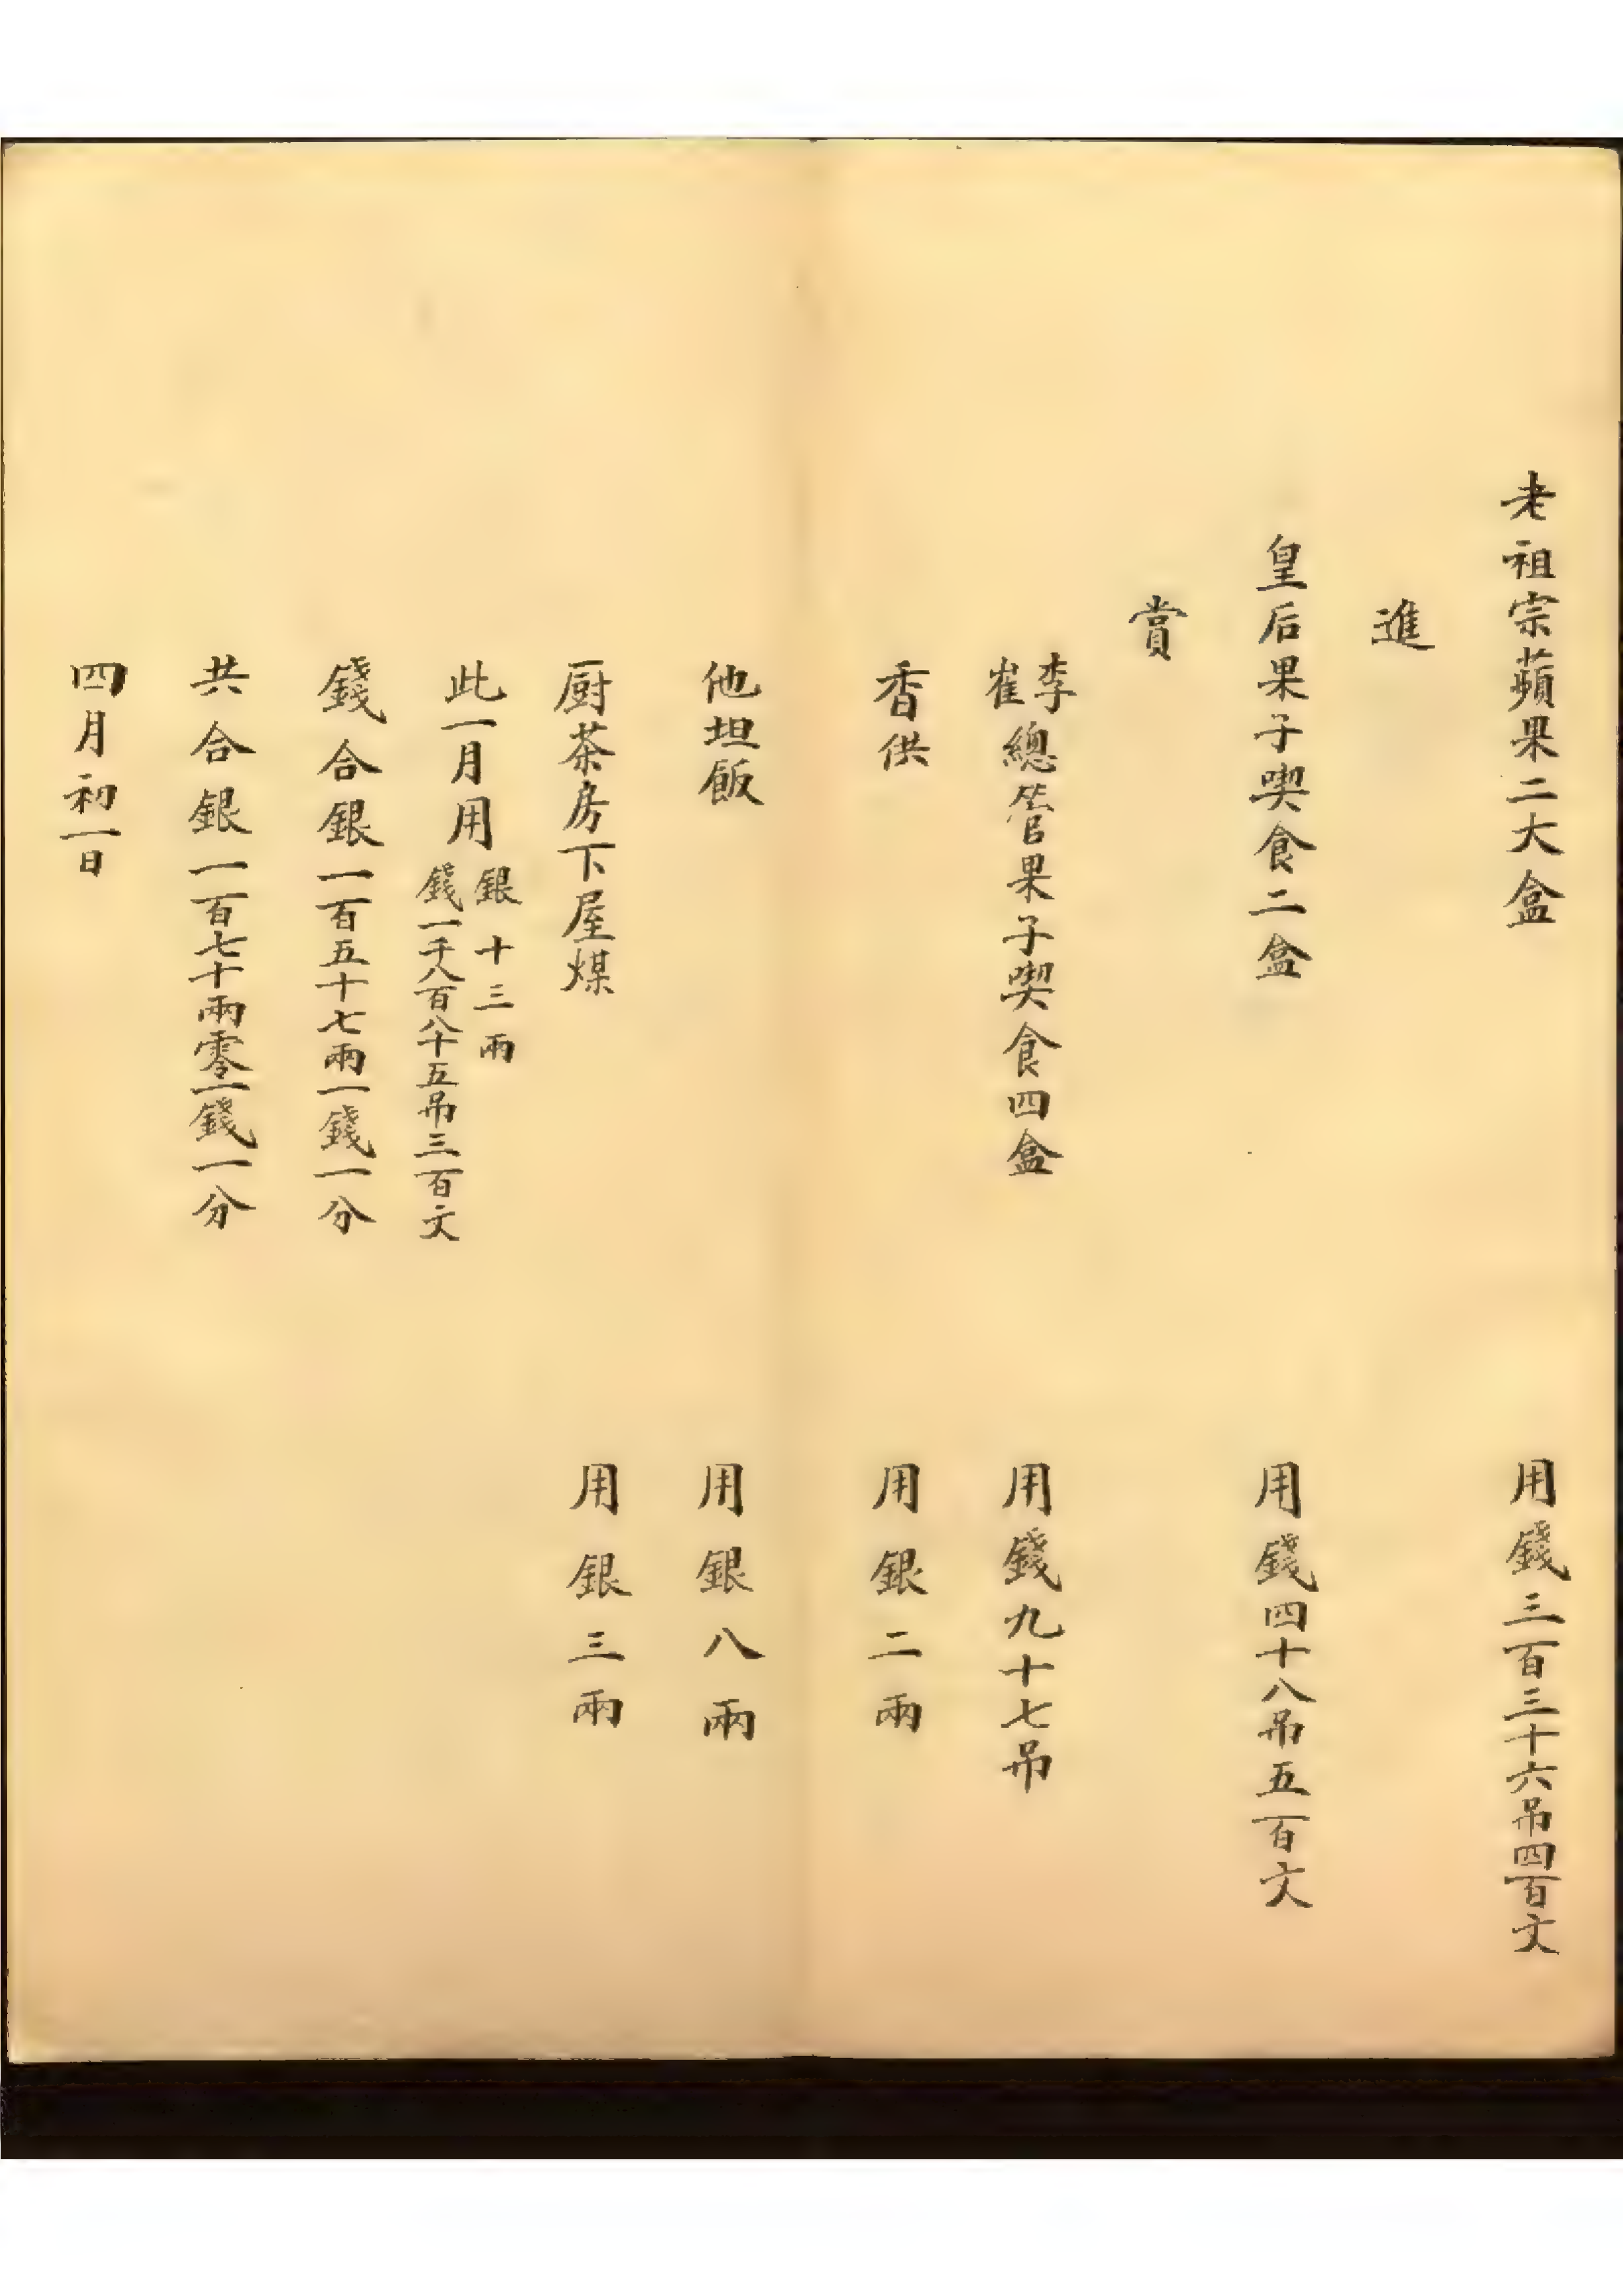 老祖宗蘋果二大盒　用錢三百三十六吊四百文
進
皇后果子喫食二盒　用錢四十八吊五百文
賞
李崔總管果子喫食四盒　用錢九十七吊
香供　用銀二兩
他坦飯　用銀八兩
厨茶房下屋煤　用銀三兩
此一月用銀十三兩錢一千八百八十五吊三百文
錢合銀一百五十七兩一錢一分
共合銀一百七十兩零一錢一分
四月初一日